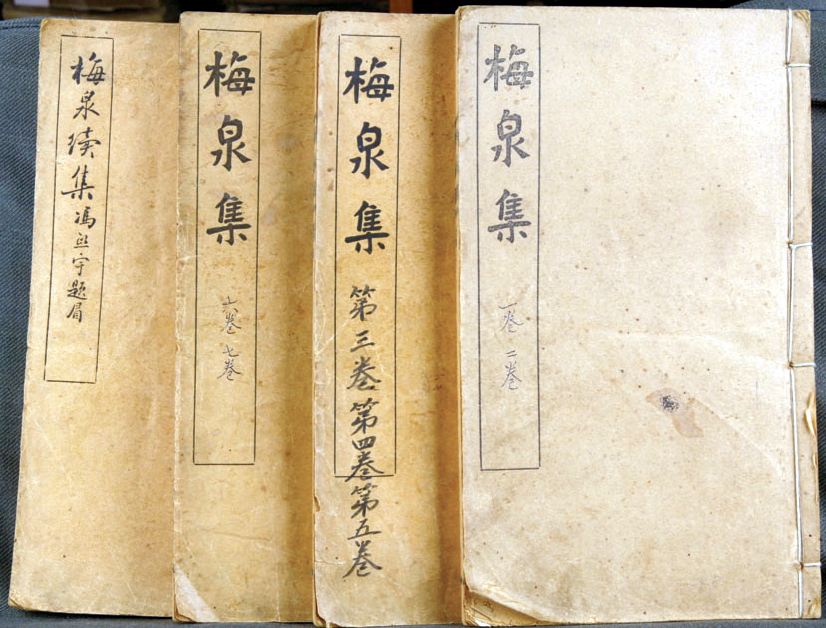 梅泉集 一卷 二卷
梅泉集 第三卷 第四卷 第五卷
梅泉集 六卷 七卷
梅泉續集 馮宇題眉